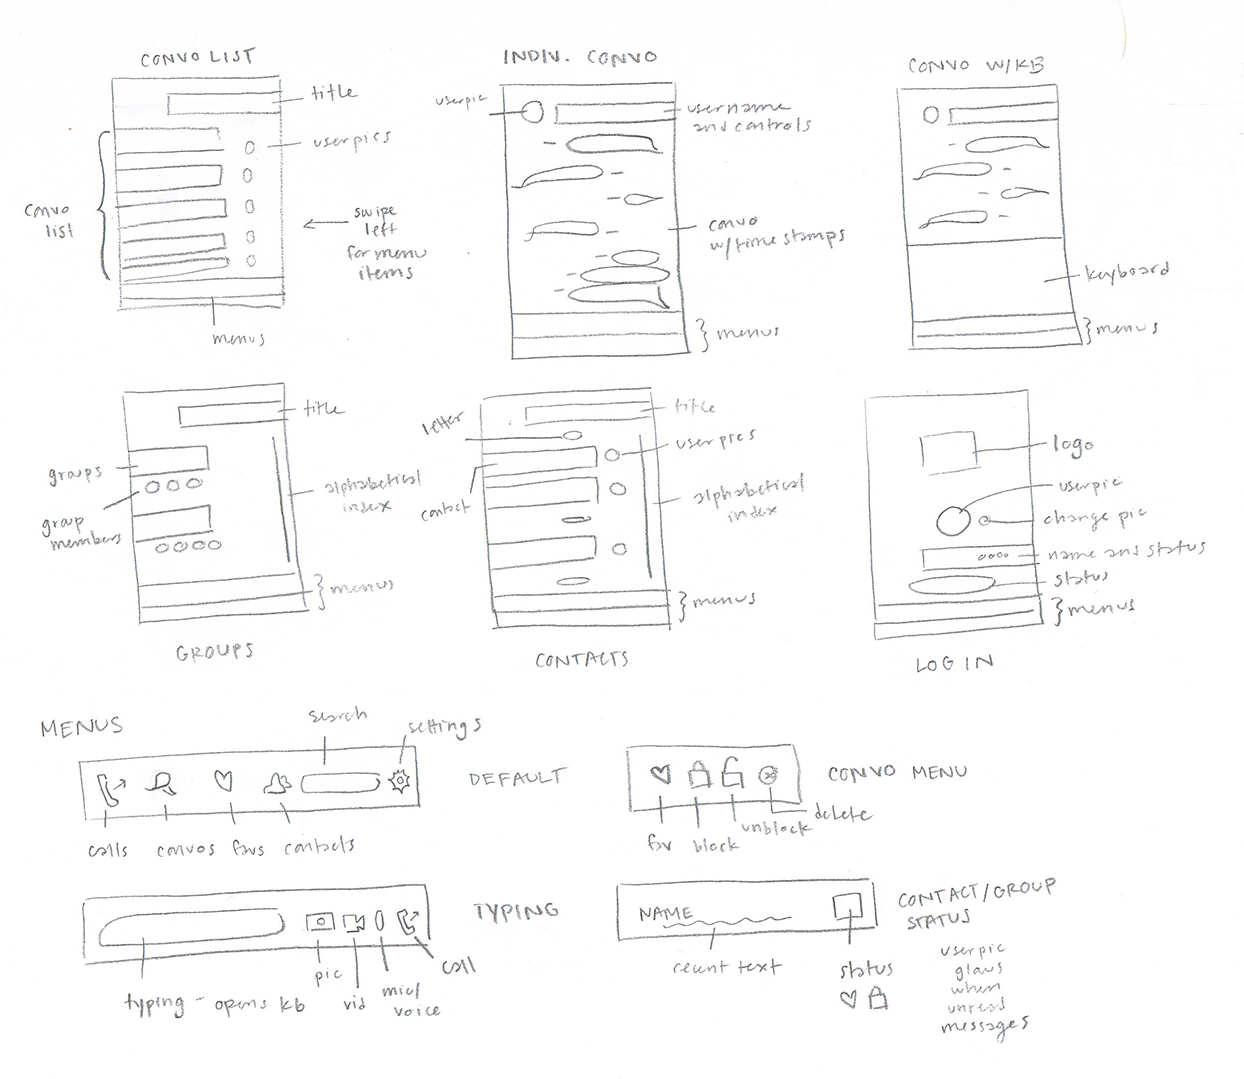 CONVO LIST
title
userpics
convo
list
swipe
left
for menu
items
menus
INDIV. CONVO
userpic
username
and controls
convo
w/time stamps
} menus
CONVO W/KB
keyboard
} menus
title
groups
group
members
alphabetical
index
} menus
GROUPS
letter
title
userpics
contact
alphabetical
index
} menus
CONTACTS
logo
userpic
change pic
name and status
status
} menus
LOG IN
MENUS
search
settings
DEFAULT
calls convos favs contacts
CONVO MENU
fav block unblock delete
TYPING
typing - opens kb
pic
vid
mic/
voice
call
NAME
CONTACT/GROUP
STATUS
recent text
status
userpic
glows
when
unread
messages